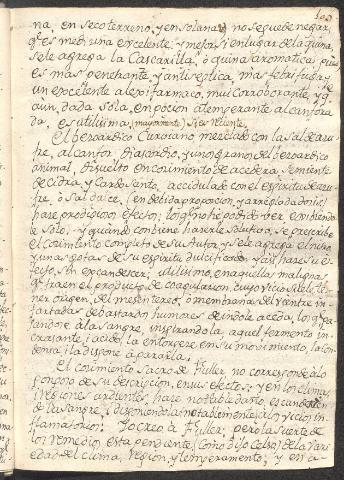 103
na, en seco terreno, y en solana; y no se puede negar,
qe. es medicina excelente: y mejor si en lugar de la quina,
se le agrega la Cascarilla, ó quina aromatica, pues
es mas penetrante, y antiseptica, mas febrifuga, y
un excelente alexifarmaco, mui corroborante, y qe.
aun dada sola, en pocion atemperante alcanfora
da, es utilissima, (mayormente) si es reciente.
El besoardico Curviano mezclado con la Sal de azu
fre, alcanfor, diascordio, y unos granos del besoardico
animal, disuelto en cocimiento de acedera, semiente
de cidra, y Cardo santo, accidulado con el espiritu de azu
fre, ó Sal dulce, (en debida proporcion, y arreglada dosis)
hace prodigioso efecto; lo qe. no he podido ver en dando
le solo: y quando conbiene hacerle solutivo, se prescribe
el cocimiento completo de su Autor, y se le agrega el nitro,
y unas gotas de su espiritu dulcificado; y asi hace su e
fecto, sin excandescer; utilissimo, en aquellas malignas,
qe. traen el producto de coagulacion, cuyo vicio suele te
ner origen, del mesenterio, ó membranas del Vientre in
fartadas de bastardos humores de indole aceda, los qe. pa
sandose á la sangre, inspirandola aquel fermento in
crasante, i acido, la entorpece en su movimiento, la con
densa, i la dispone á pararla.
El cocimiento Sacro de Fuller no corresponde á lo
pomposo de su descripcion, en sus efectos; y en los climas,
i regiones ardientes, hace notable daño, escandecien
do la sangre, i disponiendola notablemente á los vicios in
flamatorios: Yo creo á Fuller; pero la suerte de
los remedios está pendiente, (como dijo Celso) de la Vari
edad del clima, region, y temperamento; y en a-